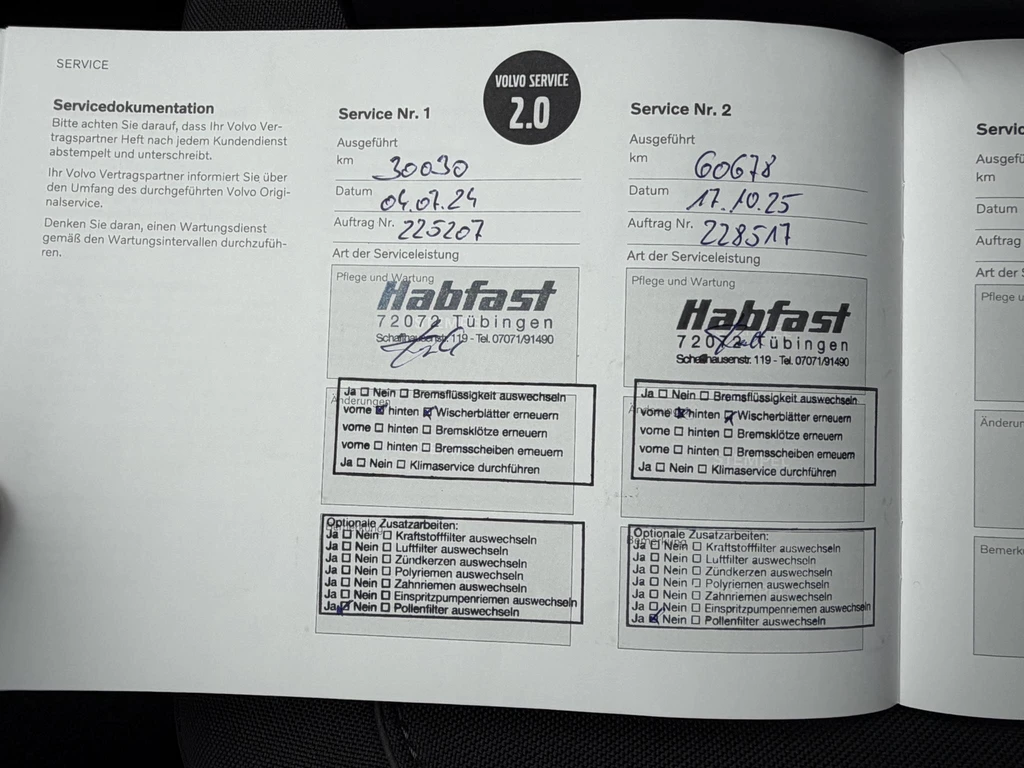 SERVICE
Servicedokumentation
Bitte achten Sie darauf, dass Ihr Volvo Ver-
tragspartner Heft nach jedem Kundendienst
abstempelt und unterschreibt.
Ihr Volvo Vertragspartner informiert Sie über
den Umfang des durchgeführten Volvo Origi-
nalservice.
Denken Sie daran, einen Wartungsdienst
gemäß den Wartungsintervallen durchzufüh-
ren.
VOLVO SERVICE
2.0
Service Nr. 1
Ausgeführt
km 30030
Datum 04.07.24
Auftrag Nr. 225207
Art der Serviceleistung
Pflege und Wartung
Habfast
72072 Tübingen
Schaffhausenstr. 119 - Tel. 07071/91490
Änderungen
Ja ☐ Nein ☐ Bremsflüssigkeit auswechseln
vorne ☒ hinten ☒ Wischerblätter erneuern
vorne ☐ hinten ☐ Bremsklötze erneuern
vorne ☐ hinten ☐ Bremsscheiben erneuern
Ja ☐ Nein ☐ Klimaservice durchführen
Optionale Zusatzarbeiten:
Ja ☐ Nein ☐ Kraftstofffilter auswechseln
Ja ☐ Nein ☐ Luftfilter auswechseln
Ja ☐ Nein ☐ Zündkerzen auswechseln
Ja ☐ Nein ☐ Polyriemen auswechseln
Ja ☐ Nein ☐ Zahnriemen auswechseln
Ja ☐ Nein ☐ Einspritzpumpenriemen auswechseln
Ja ☒ Nein ☐ Pollenfilter auswechseln
Service Nr. 2
Ausgeführt
km 60678
Datum 17.10.25
Auftrag Nr. 228517
Art der Serviceleistung
Pflege und Wartung
Habfast
72072 Tübingen
Schaffhausenstr. 119 - Tel. 07071/91490
Ja ☐ Nein ☐ Bremsflüssigkeit auswechseln
vorne ☒ hinten ☒ Wischerblätter erneuern
vorne ☐ hinten ☐ Bremsklötze erneuern
vorne ☐ hinten ☐ Bremsscheiben erneuern
Ja ☐ Nein ☐ Klimaservice durchführen
Optionale Zusatzarbeiten:
Bemerkung
Ja ☐ Nein ☐ Kraftstofffilter auswechseln
Ja ☐ Nein ☐ Luftfilter auswechseln
Ja ☐ Nein ☐ Zündkerzen auswechseln
Ja ☐ Nein ☐ Polyriemen auswechseln
Ja ☐ Nein ☐ Zahnriemen auswechseln
Ja ☐ Nein ☐ Einspritzpumpenriemen auswechseln
Ja ☒ Nein ☐ Pollenfilter auswechseln
Servic
Ausgefü
km
Datum
Auftrag
Art der S
Pflege u
Änderun
Bemerku